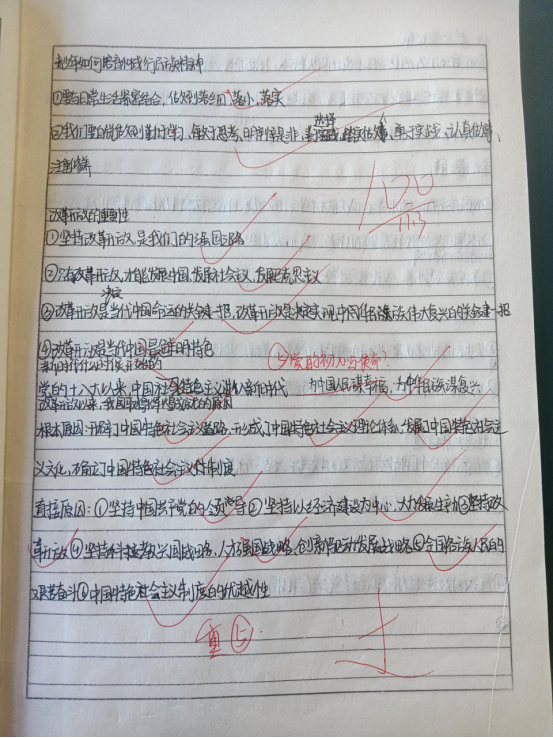 青少年如何培育和践行民族精神
①要与日常生活紧密结合，从做到落细、落小、落实
②我们要自觉做到勤于学习、敏于思考、明辨是非、善于选择、踏实做人、勇于实践、认真做事、
注重修养
100
113
改革开放的重要性
①坚持改革开放是我们的强国之路
②只有改革开放，才能发展中国、发展社会主义、发展马克思主义
③改革开放是决定当代中国命运的关键一招，改革开放是决定实现中华民族伟大复兴的关键一招
④改革开放是当代中国最鲜明特色
⑤党的初心与使命？
新时代什么时候开始的
党的十八大以来，中国特色社会主义进入新时代 为中国人民谋幸福，为中华民族谋复兴
改革开放以来，我国取得伟大成就的原因
根本原因：开辟了中国特色社会主义道路，形成了中国特色社会主义理论体系，发展了中国特色社会主
义文化，确立了中国特色社会主义制度
直接原因：①坚持中国共产党的领导②坚持以经济建设为中心，大力发展生产力③坚持改
革开放④坚持科技教兴国战略，人才强国战略，创新驱动发展战略⑤全国各族人民的
艰苦奋斗⑥中国特色社会主义制度的优越性
重